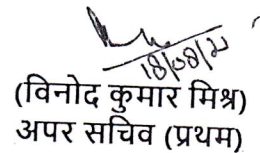 18/08/21
(विनोद कुमार मिश्र)
अपर सचिव (प्रथम)